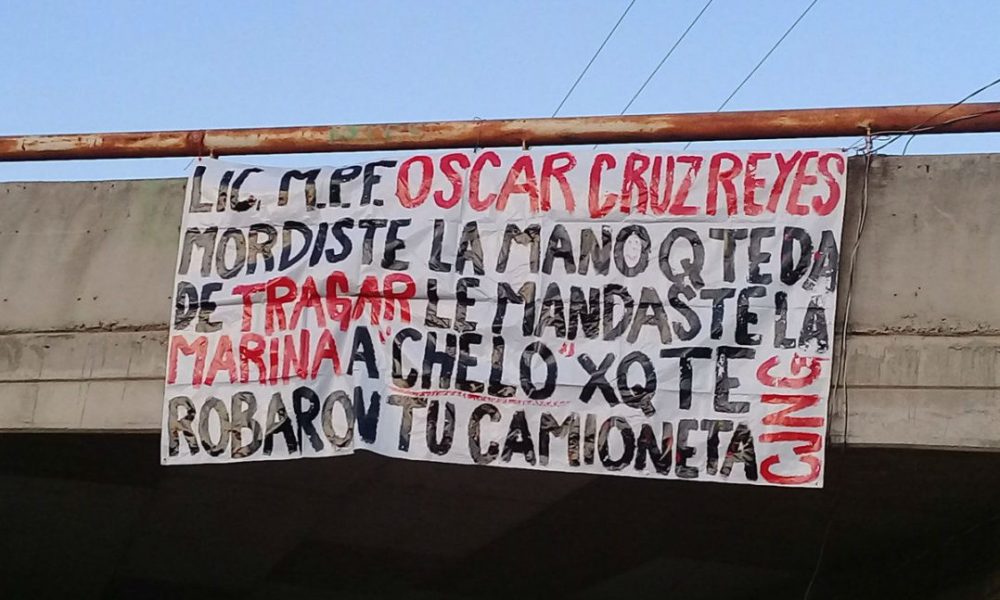 LIC. M.P.F. OSCAR CRUZ REYES
MORDISTE LA MANO Q TE DA
DE TRAGAR LE MANDASTE LA
MARINA A "CHELO" XQ TE
ROBARON TU CAMIONETA
CJNG